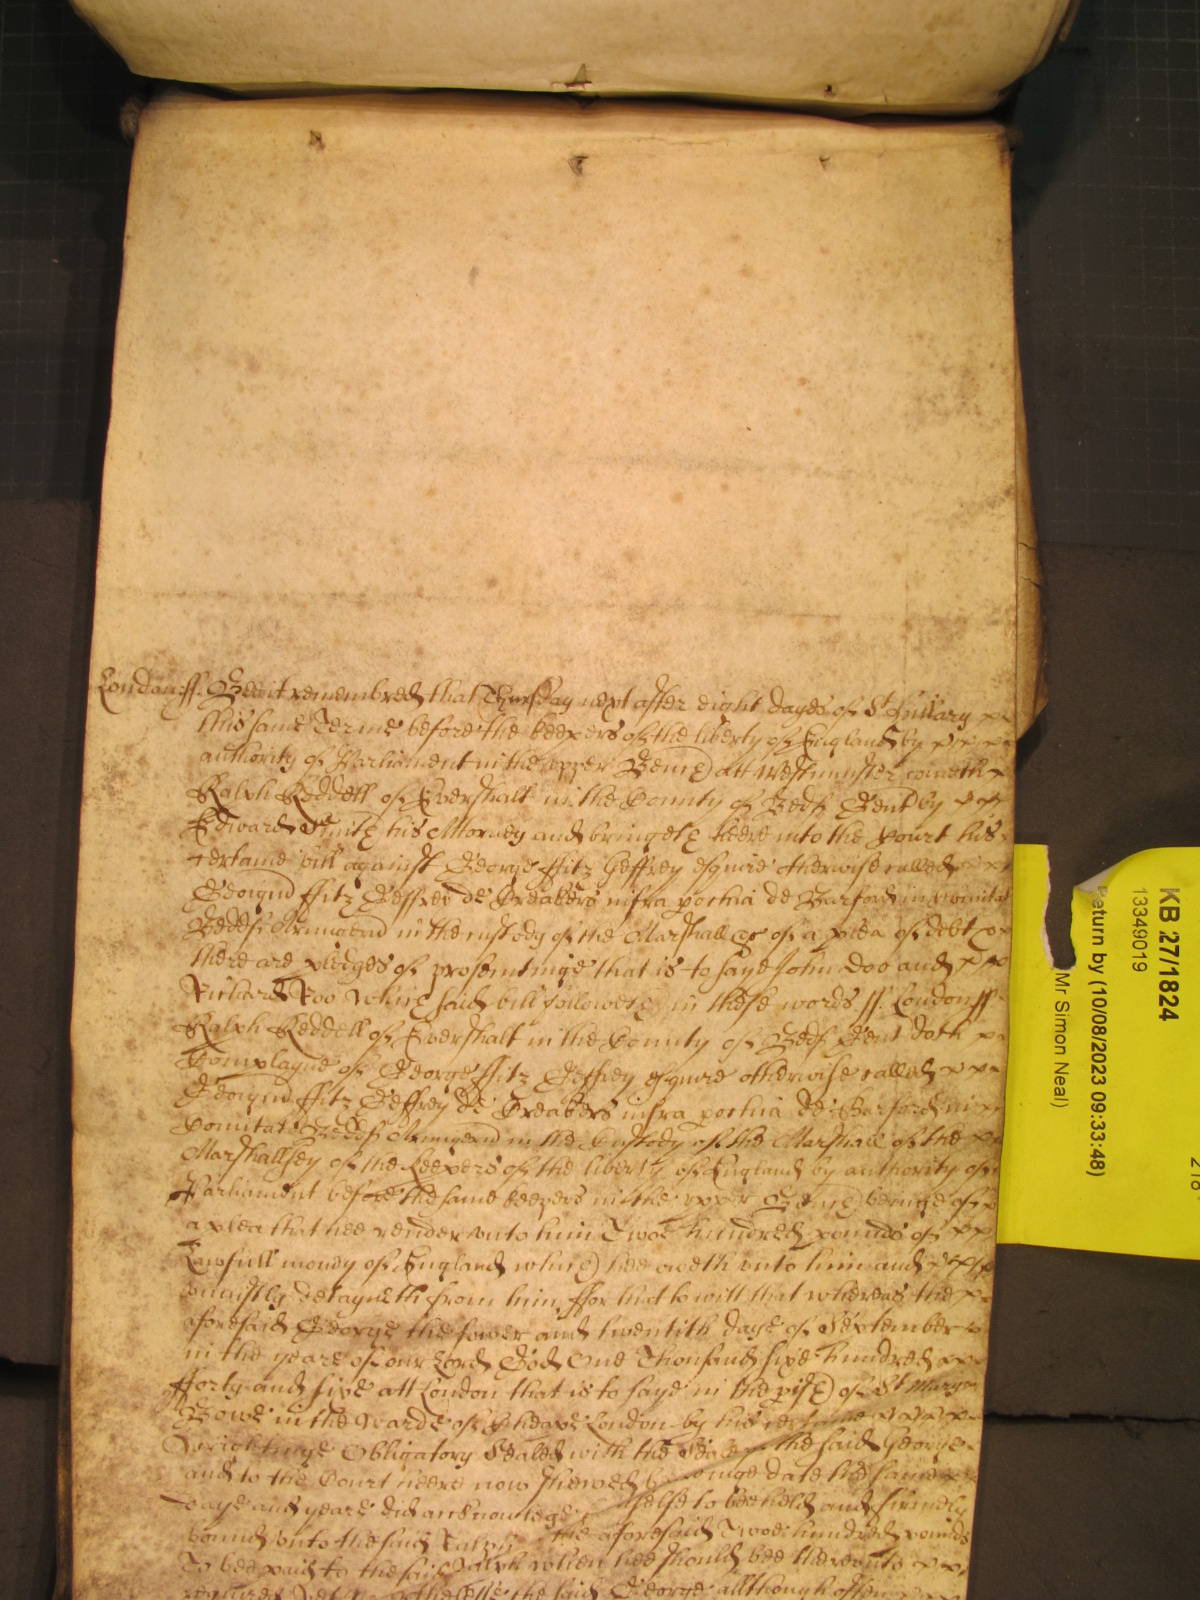 London: ss. Bee it remembred that Thursday next after eight dayes of St Hillary
this same Terme before the keepers of the liberty of England by
authority of Parliament in the upper Bench att Westminster cometh
Ralph Reddell of Evershalt in the County of Bedf Gent by
Edward Smith his Attorney and bringeth heere into the Court his
certaine bill against George ffitz Geffrey esquire otherwise called
Georgiu ffitz Geffrey de Creakers infra pochia de Barford in Comitat
Bedds Armigeru in the custody of the Marshall &c of a plea of debt
there are pledges of prosecutinge that is to saye John Doo and
Richard Roo Which said bill followeth in these words ss. London ss
Ralph Reddell of Evershalt in the County of Bedf Gent doth
Complayne of George ffitz Geffrey esquire otherwise called
Georgiu ffitz Geffrey de Creakers infra pochia de Barford in
Comitat Bedds Armigeru in the Custody of the Marshall of the
Marshallsey of the keepers of the liberty of England by authority of
Parliament before the same keepers in the upper Bench beeinge of
a plea that hee render unto him Twoe hundred pounds of
Lawfull money of England which hee oweth unto him and
uniustly detayneth from him ffor that to witt that whereas the
aforesaid George the fower and twentith daye of September
in the yeare of our Lord God One Thousand sixe hundred
fforty and five att London that is to saye in the pish of St Marye
Bowe in the Warde of Cheape London by his certaine
Wrightinge Obligatory Sealed with the Seale the said George
and to the Court heere now shewed beinge date the same
Daye and yeare did acknowlege selfe to bee held and firmely
bound unto the said Ralph the aforesaid Twoe hundred pounds
To bee paid to the said Ralph when hee should bee thereunto
required the said George allthough often
KB 27/1824
13349019
Return by (10/08/2023 09:33:48)
Mr Simon Neal)